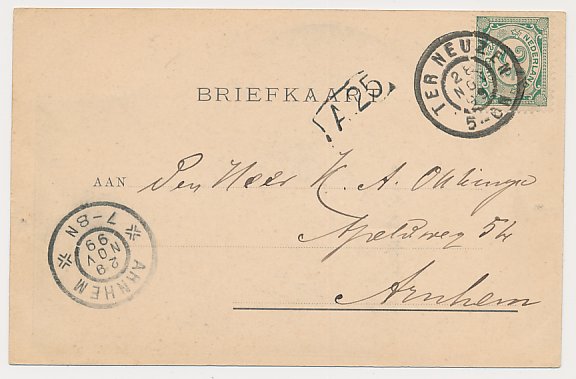 NEDERLAND
2½
TER NEUZEN
28
NOV
5-6
BRIEFKAART
A 25
AAN Den Heer K. A.
Apeldweg 54
Arnhem
7-8N
29
NOV
99
ARNHEM